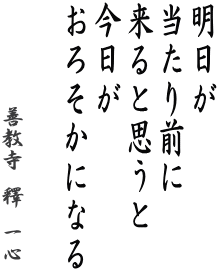 明日が
当たり前に
来ると思うと
今日が
おろそかになる
善教寺 釋 一心